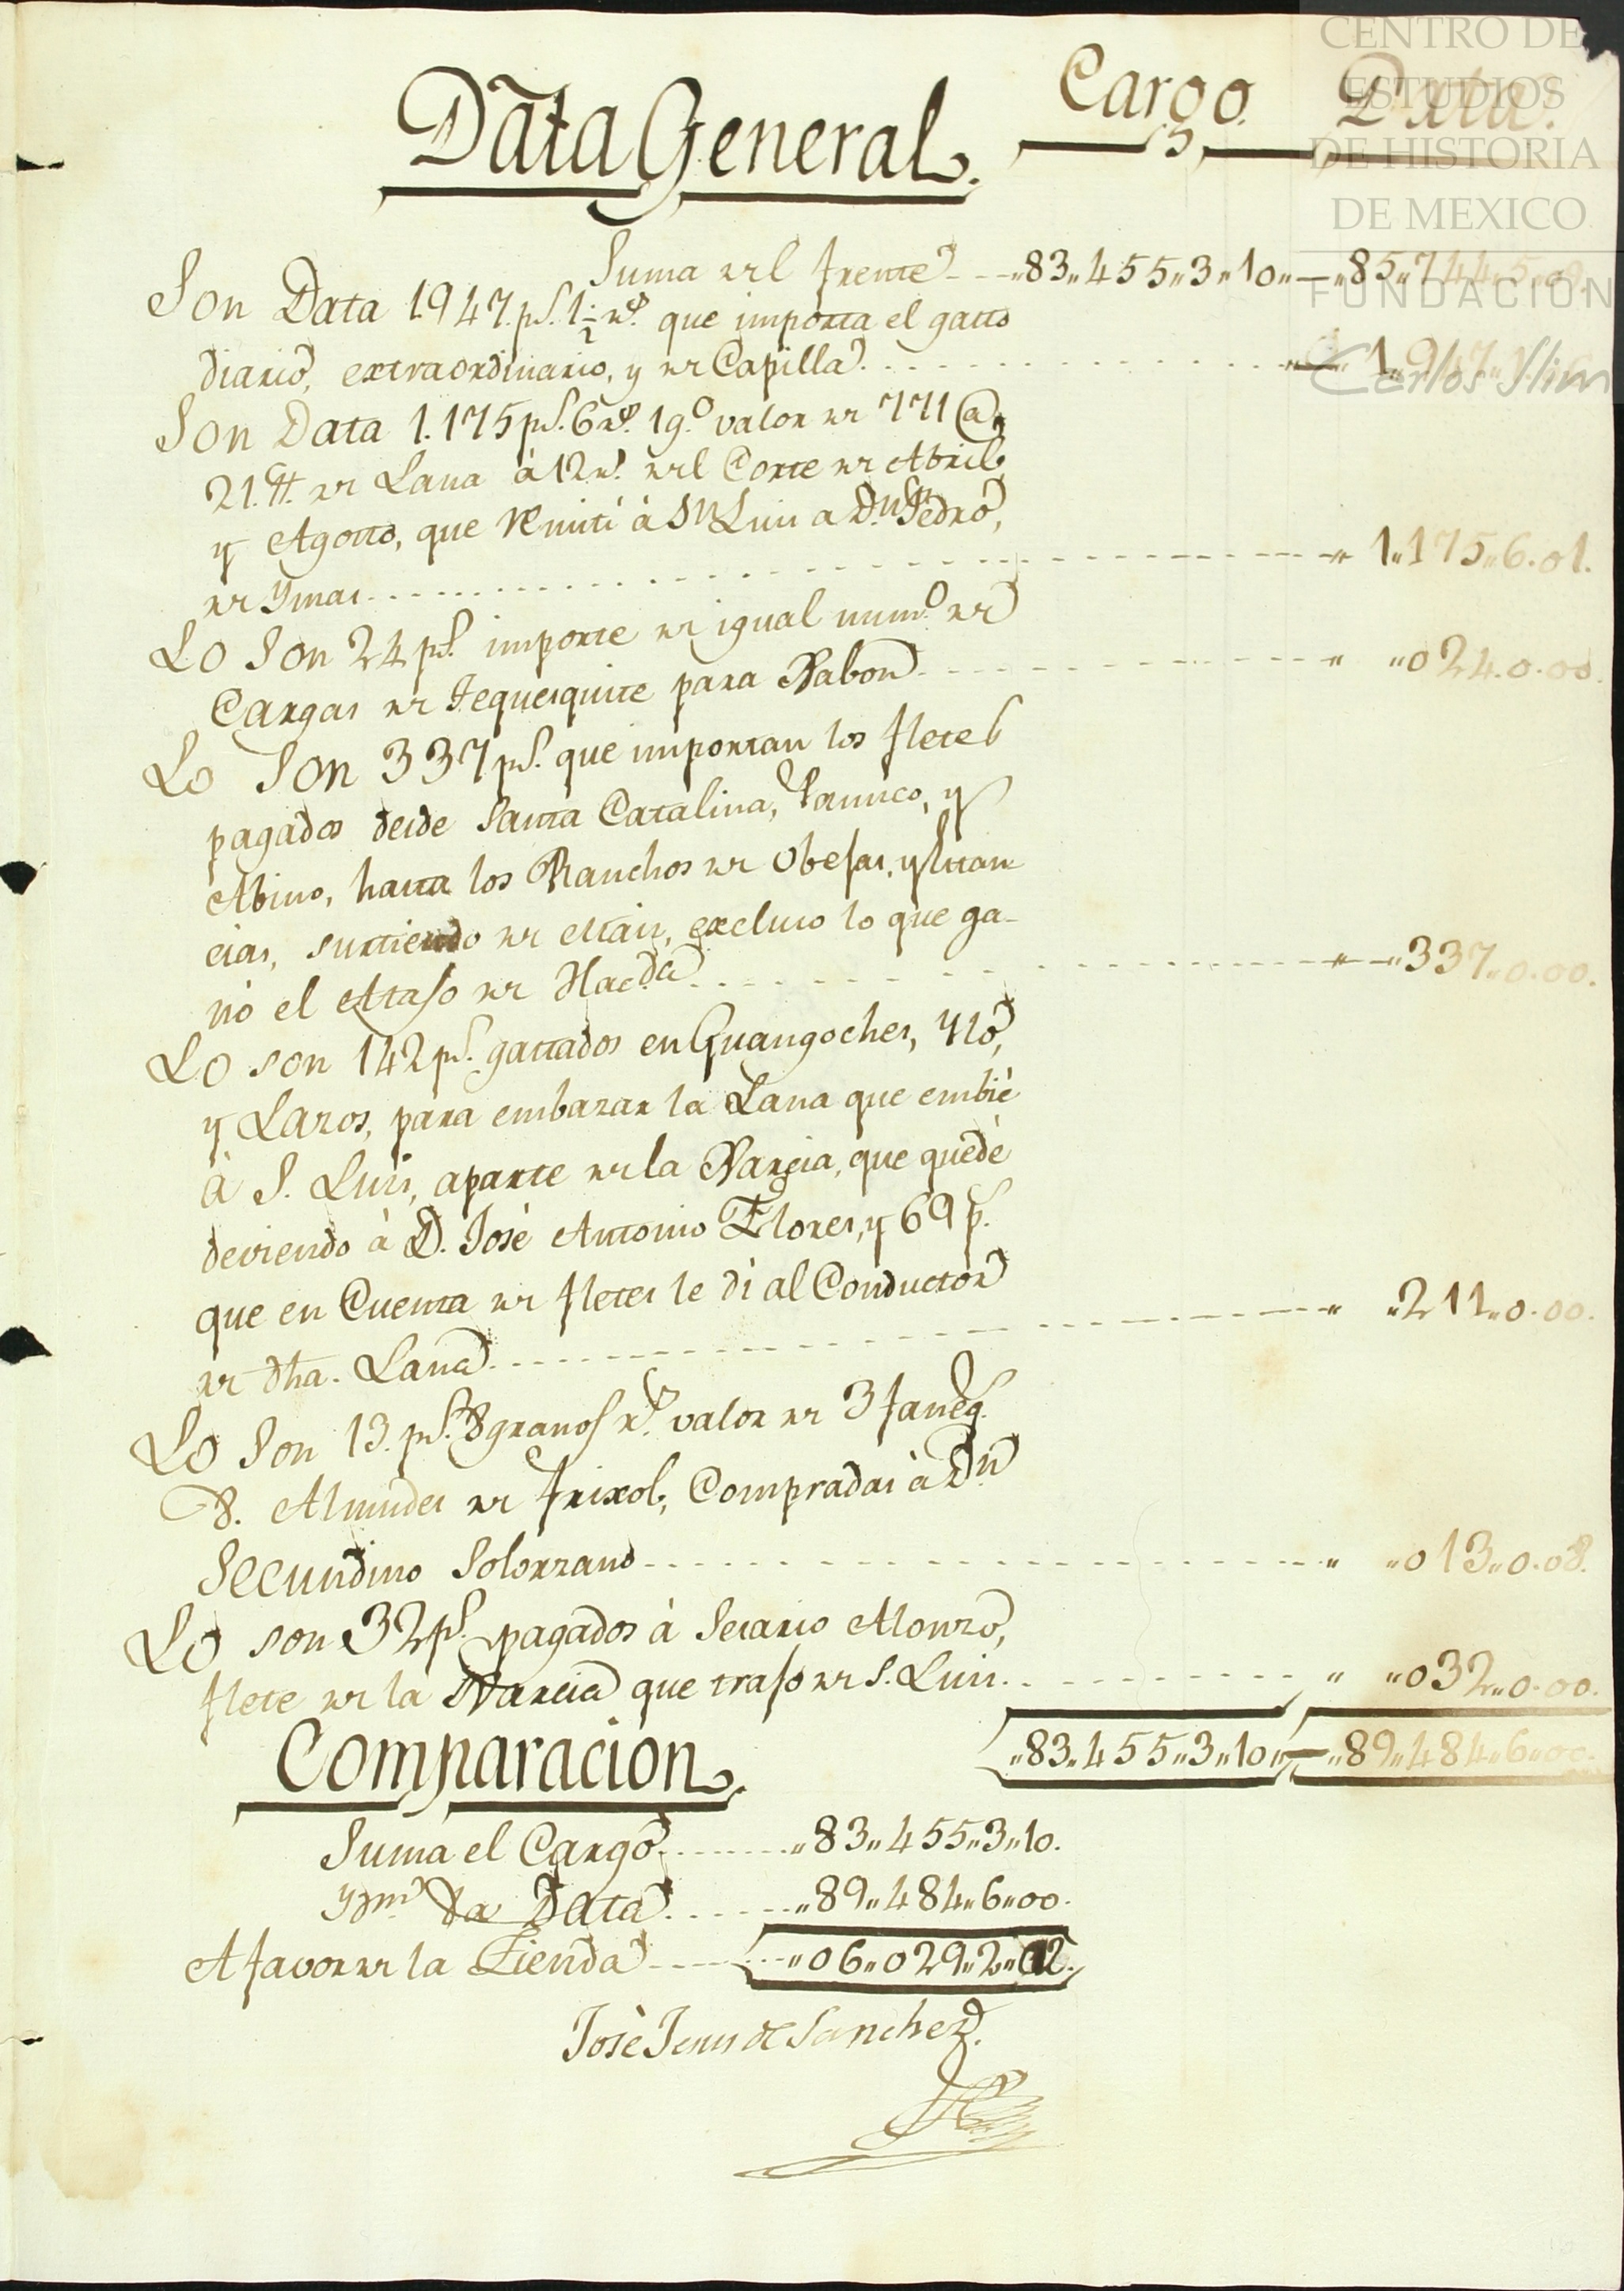 CENTRO DE
ESTUDIOS
DE HISTORIA
DE MEXICO
FUNDACION
Carlos Slim
Data General. Cargo. Data.
Suma del frente „83„455„3„10„ „85„744„5„
Son Data 1.947 p.s 1½ r.s que importa el gasto
diario, extraordinario, y de Capilla 1„947„
Son Data 1.175 p.s 6 r.s 1 g.o valor de 771 @.s
21 ℔. de Lana à 12 r.s del Corte de Abril,
y Agosto, que remití à S.n Luis a D.n Pedro,
de Ymas „ 1„175„6.01.
Lo Son 24 p.s importe de igual num.o de
Cargas de Tequesquite para Xabon „ „024.0.00.
Lo Son 337 p.s que importan los fletes
pagados desde Santa Catalina, Panuco, y
Abino, hasta los Ranchos de Obejas, y Estan
cias, surtiendo de Maiz, excluso lo que ga-
nó el Atajo de Hac.da „ „337„0.00.
Lo son 142 p.s gastados en Guangoches, Yló,
y Lazos, para embazar la Lana que embié
à S. Luis, aparte de la Xarcia, que quedé
deviendo à D. José Antonio Flores, y 69 p.s
que en Cuenta de fletes le dí al Conductor
de dha. Lana „ „211„0.00.
Lo Son 13. p.s 8 granos r.s valor de 3 faneg.s
8. Almudes de frixol, Compradas à D.n
Secundino Solorzano „ „013„0.08.
Lo son 32 p.s pagados à Secario Alonzo,
flete de la Xarcia que trajo de S. Luis. „ „032„0.00.
„83„455„3„10„ „89„484„6„00.
Comparacion.
Suma el Cargo „83„455„3„10.
Ydm. la Data „89„484„6„00.
A favor de la Tienda „06„029„2„02.
José Jesus de Sanchez.